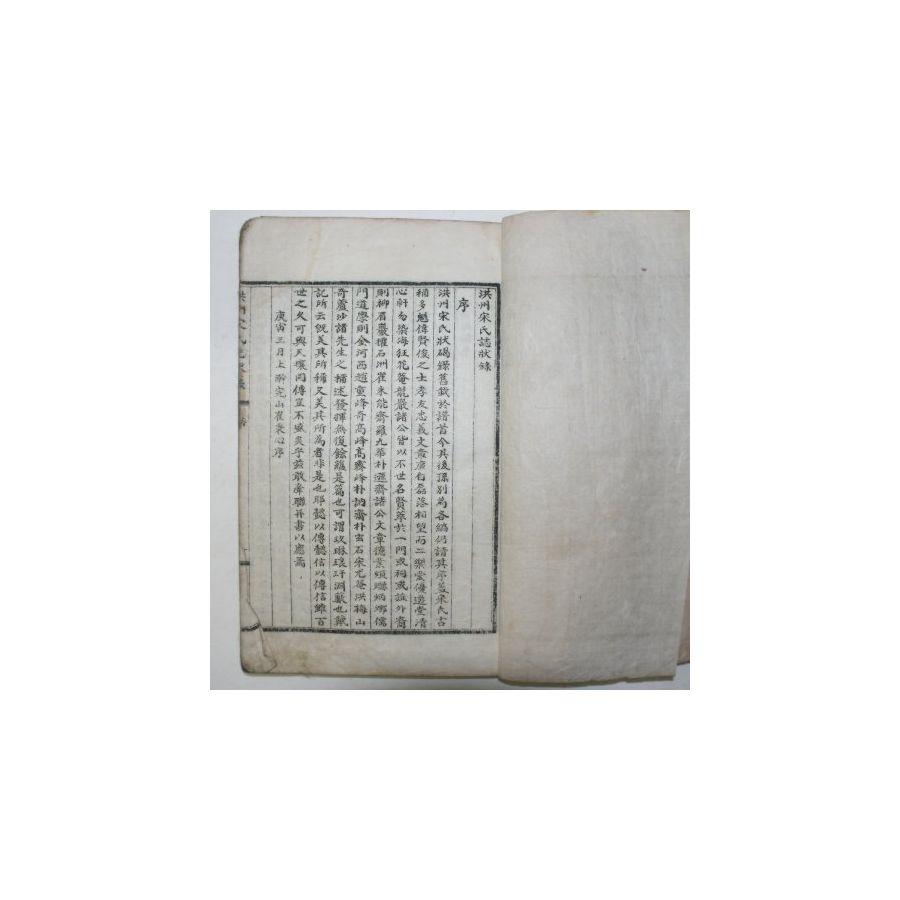 洪州宋氏誌狀錄
序
洪州宋氏狀碣錄舊鋟於譜首今其後孫別為各編仍請其序蓋宋氏古
稱多魁偉賢俊之士孝友忠義文章廣行磊落相望而二樂堂優遊堂清
心軒勿染海狂花菴龍巖諸公皆以不世名賢萃於一門或祠或誰外裔
則柳眉巖權石洲崔朱能齋羅九華朴遯齋諸公文章德業頭聯炳鄉儒
門道學則金河西趙重峰奇高峰高霽峰朴訥齋朴玄石宋尤菴洪梅山
奇蘆沙諸先生之稱述發揮無復餘蘊是篇也可謂玫琳琅玕淵藪也
記所云旣美其所稱又美其所為者非是也耶懿以傳懿信以傳信雖百
世之久可與天壤同傳豈不盛矣乎茲敢牽聯幷書以應焉
庚寅三月上澣完山崔秉心序
洪州宋氏誌狀錄